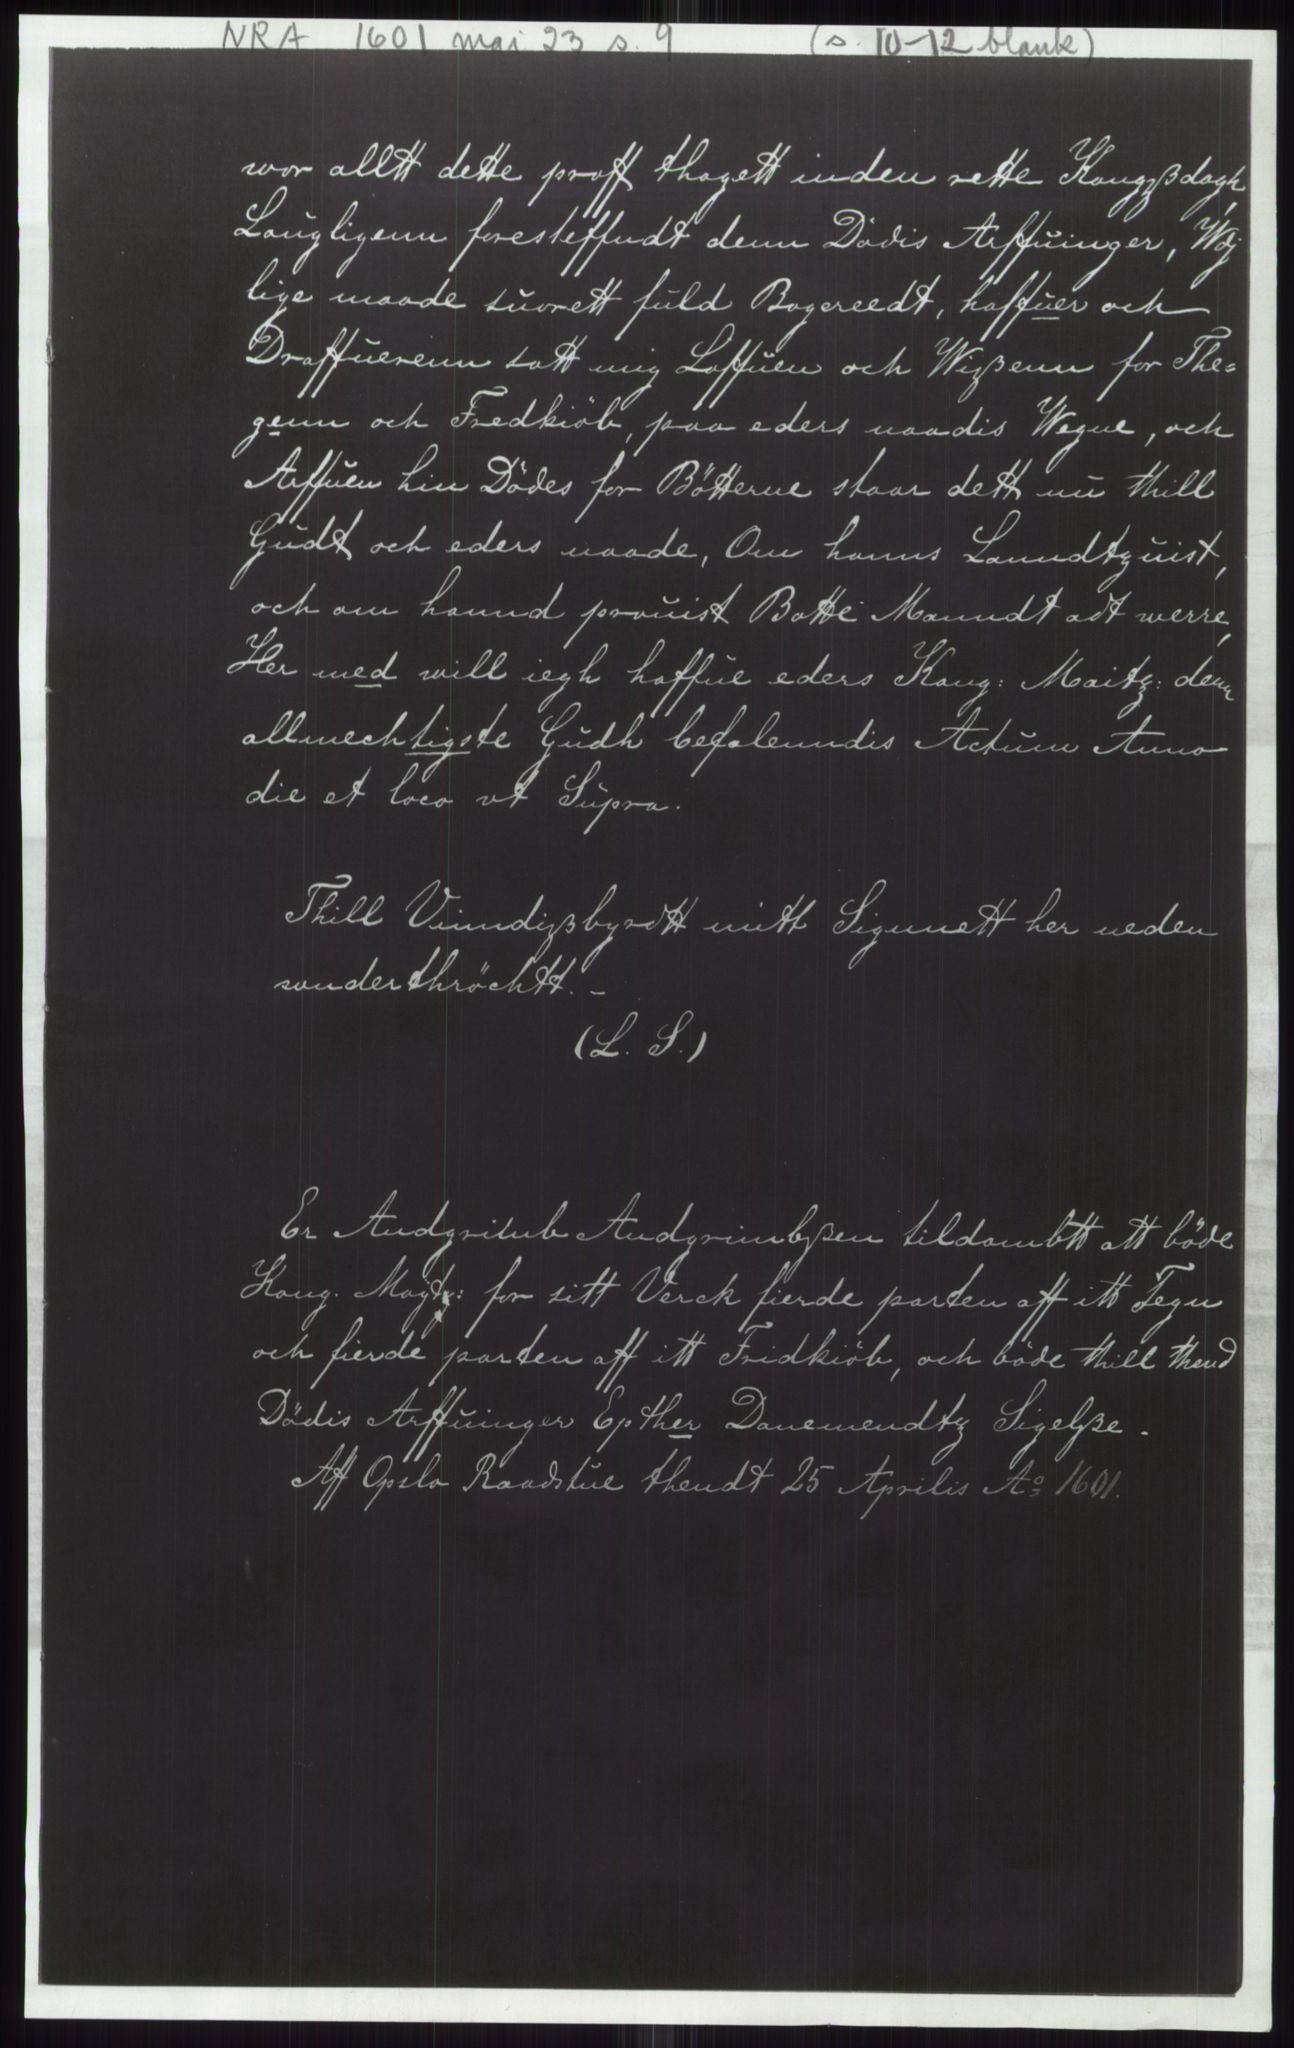 NRA 1601 mai 23 s. 9 (s. 10-12 blank)
wor alltt dette proff thagett inden rette Kongzßdagh,
Laugligenn foresteffndt denn Dödis Arffuinger, Wdj
lige maade suorett fuld Bogereedt, haffuer och
Draffuerenn satt mig Laffuen och Wißenn for The=
genn och Fredkiöb, paa eders naadis Wegne, och
Arffuen hin Dödes for Bötterne staar dett nu thill
Gudt och eders naade, Om hanns Lanndtzuist,
och om hannd prouist Botte Manndt adt werre,
Her med will iegh haffue eders Kong: Maitz: denn
allmechtigste Gudh befalenndis Actum Anno
die et loco vt Supra.
Thill Vinndißbyrdtt mitt Signnett her neden
wnderthröchtt. -
(L. S.)
Er Andgrimb Andgrimbßen tildömbtt att böde
Kong. Maytz: for sitt Verck fierde parten aff itt Tegn
och fierde parten aff itt Fridkiöb, och böde thill thend
Dödis Arffuinger Epther Danemendtz Sigelße.
Aff Opslo Raadstue thendt 25 Aprilis Ao 1601.